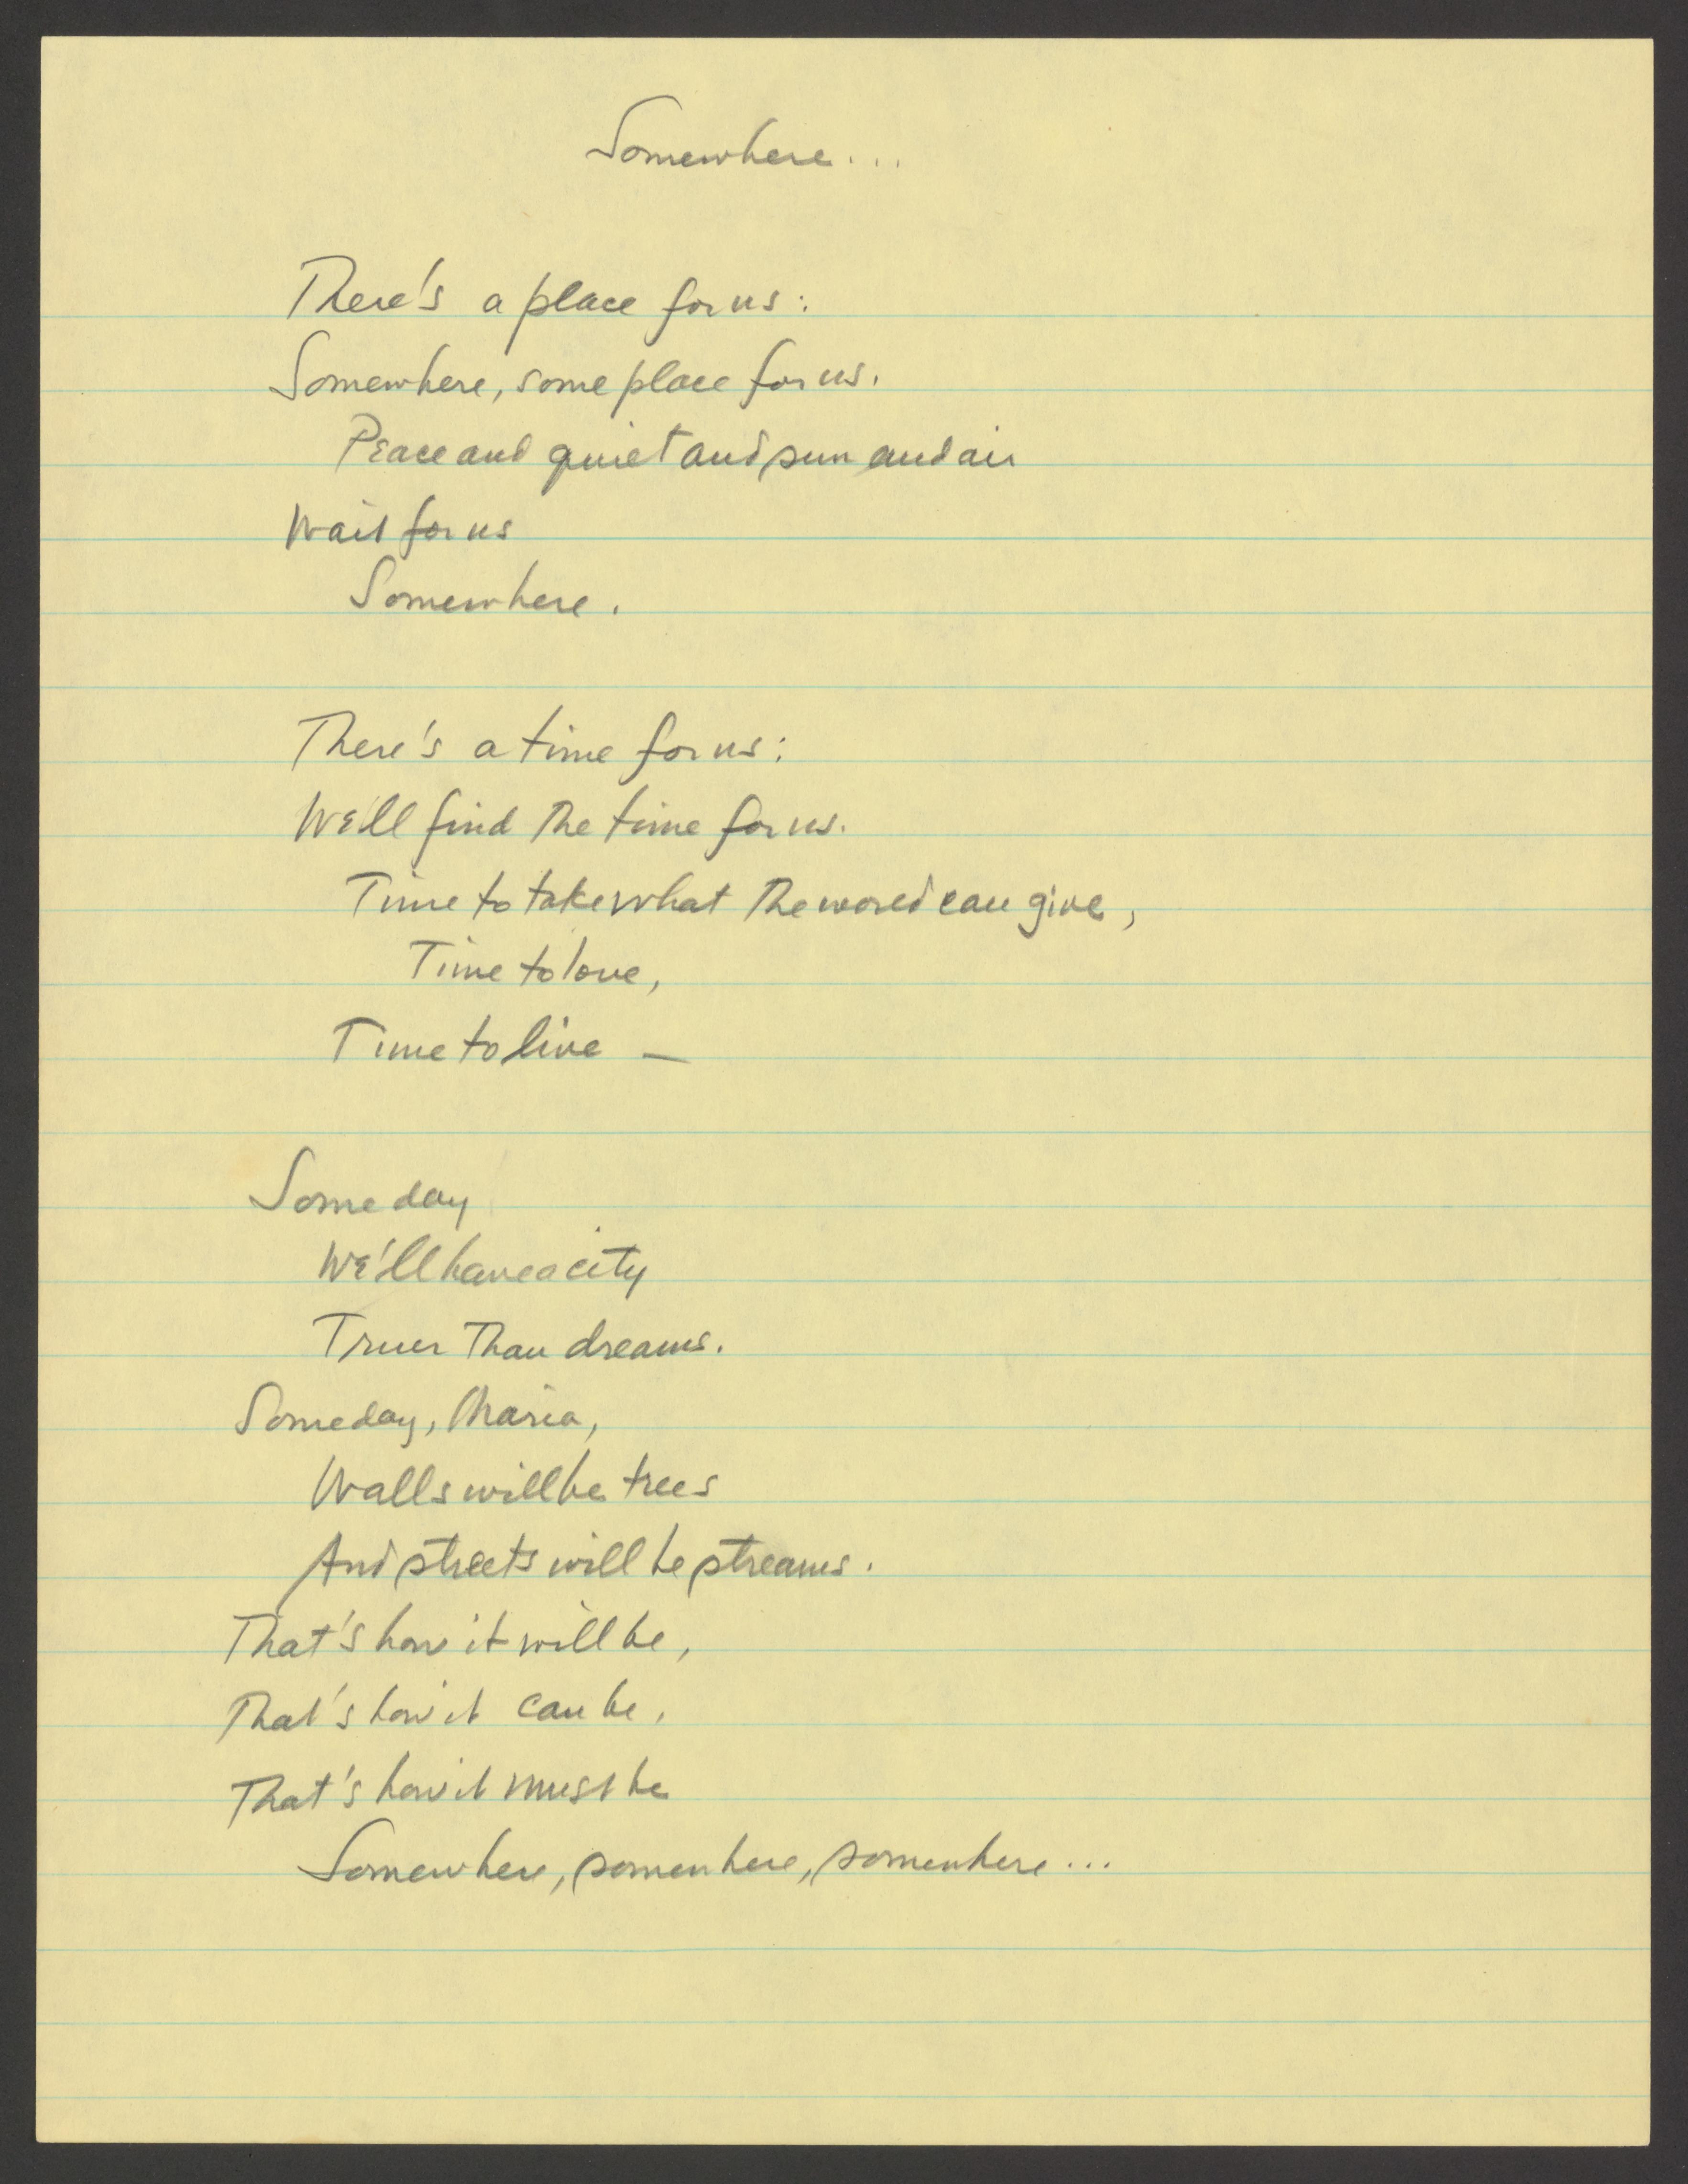 Somewhere...
There's a place for us:
Somewhere, some place for us.
Peace and quiet and sun and air
Wait for us
Somewhere.
There's a time for us:
We'll find the time for us.
Time to take what the world can give,
Time to love,
Time to live —
Some day
We'll have a city
Truer than dreams.
Someday, Maria,
Walls will be trees
And streets will be streams.
That's how it will be,
That's how it can be,
That's how it must be
Somewhere, somewhere, somewhere...